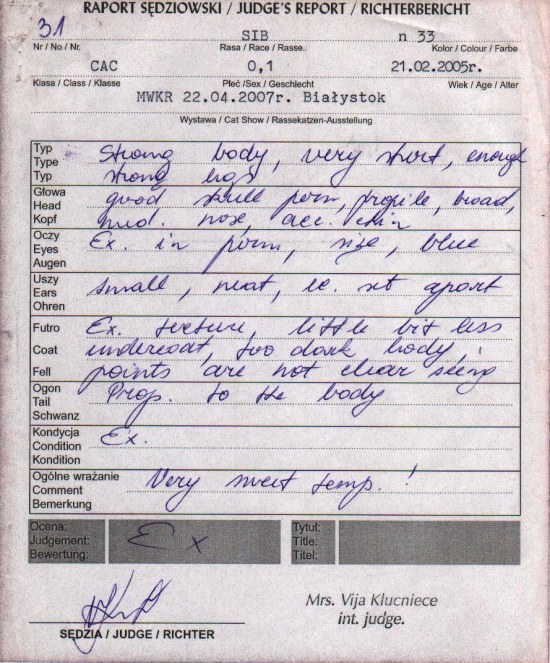 RAPORT SĘDZIOWSKI / JUDGE'S REPORT / RICHTERBERICHT
31 SIB n 33
Nr / No / Nr. Rasa / Race / Rasse. Kolor / Colour / Farbe
CAC 0,1 21.02.2005r.
Klasa / Class / Klasse Płeć /Sex / Geschlecht Wiek / Age / Alter
MWKR 22.04.2007r. Białystok
Wystawa / Cat Show / Rassekatzen-Ausstellung
Typ Strong body, very short, enough
Type strong legs
Typ
Głowa good skull form, profile, broad,
Head med. nose, acc. chin
Kopf
Oczy Ex. in form, size, blue
Eyes
Augen
Uszy small, neat, set apart
Ears
Ohren
Futro Ex. texture, little bit less
Coat undercoat, too dark body,
Fell points are not clear seing
Ogon Prop. to the body
Tail
Schwanz
Kondycja Ex.
Condition
Kondition
Ogólne wrażanie Very sweet temp. !
Comment
Bemerkung
Ocena: Ex Tytuł:
Judgement: Title:
Bewertung: Titel:
Mrs. Vija Klucniece
int. judge.
SĘDZIA / JUDGE / RICHTER